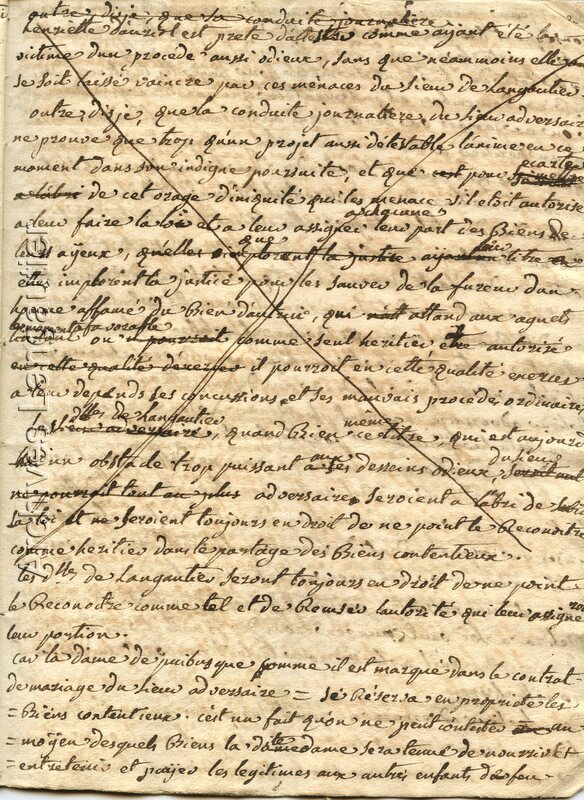 outre disje, que sa conduite journaliere
henriette dauriol est prete d'attester comme ayant été la
victime d'un procedé aussi odieux, sans que neammoins elle
se soit laissé vaincre par ces ménaces du sieur de Langautier
outre, disje, que la conduite journaliere, du sieur adversaire
ne prouve que trop qu'un projet aussi détestable l'anime en ce
moment dans son indigne poursuite, et que c'est pour
ecarter
a labri de cet orage d'iniquité qui les menace s'il etoit autorisé
a leur faire la loi et a leur assigner leur part des Biens de
a chacune
leurs ayeux, qu'elles implorent la justice
que
elles implorent la justice pour les sauver de la fureur d'un
homme affamé du Bien d'autrui, qui attand aux aguets
le moment favorable
ou pourroit comme seul heritier etre autorisé
en cette qualité d'exercer il pourroit en cette qualité exercer
a leur depends ses concussions et ses mauvais procedé ordinaire
dlles de Langautier
adversaire, quand Bien ce titre, qui est aujourd
même
un obstacle trop puissant aux desseins odieux,
du sieur
ne pourroit tout au plus adversaire seroient a labri de
la loi et ne seroient toujours en droit de ne point le Reconoitre
comme heritier dans le partage des Biens contentieux.
les dlles de Langautier seront toujours en droit de ne point
le Reconoitre comme tel et de Refuser l'autorité qui leur assigne
leur portion.
Car la dame de puibusque comme il est marqué dans le contrat
de mariage du sieur adversaire = se Réserva en propriete les
= Biens contentieux. c'est un fait qu'on ne peut contester au
= moyen desquels Biens la dite dame sera tenue de nourrir et
= entretenir et payer les legitimes aux autres enfants du feu -
Archives Languier